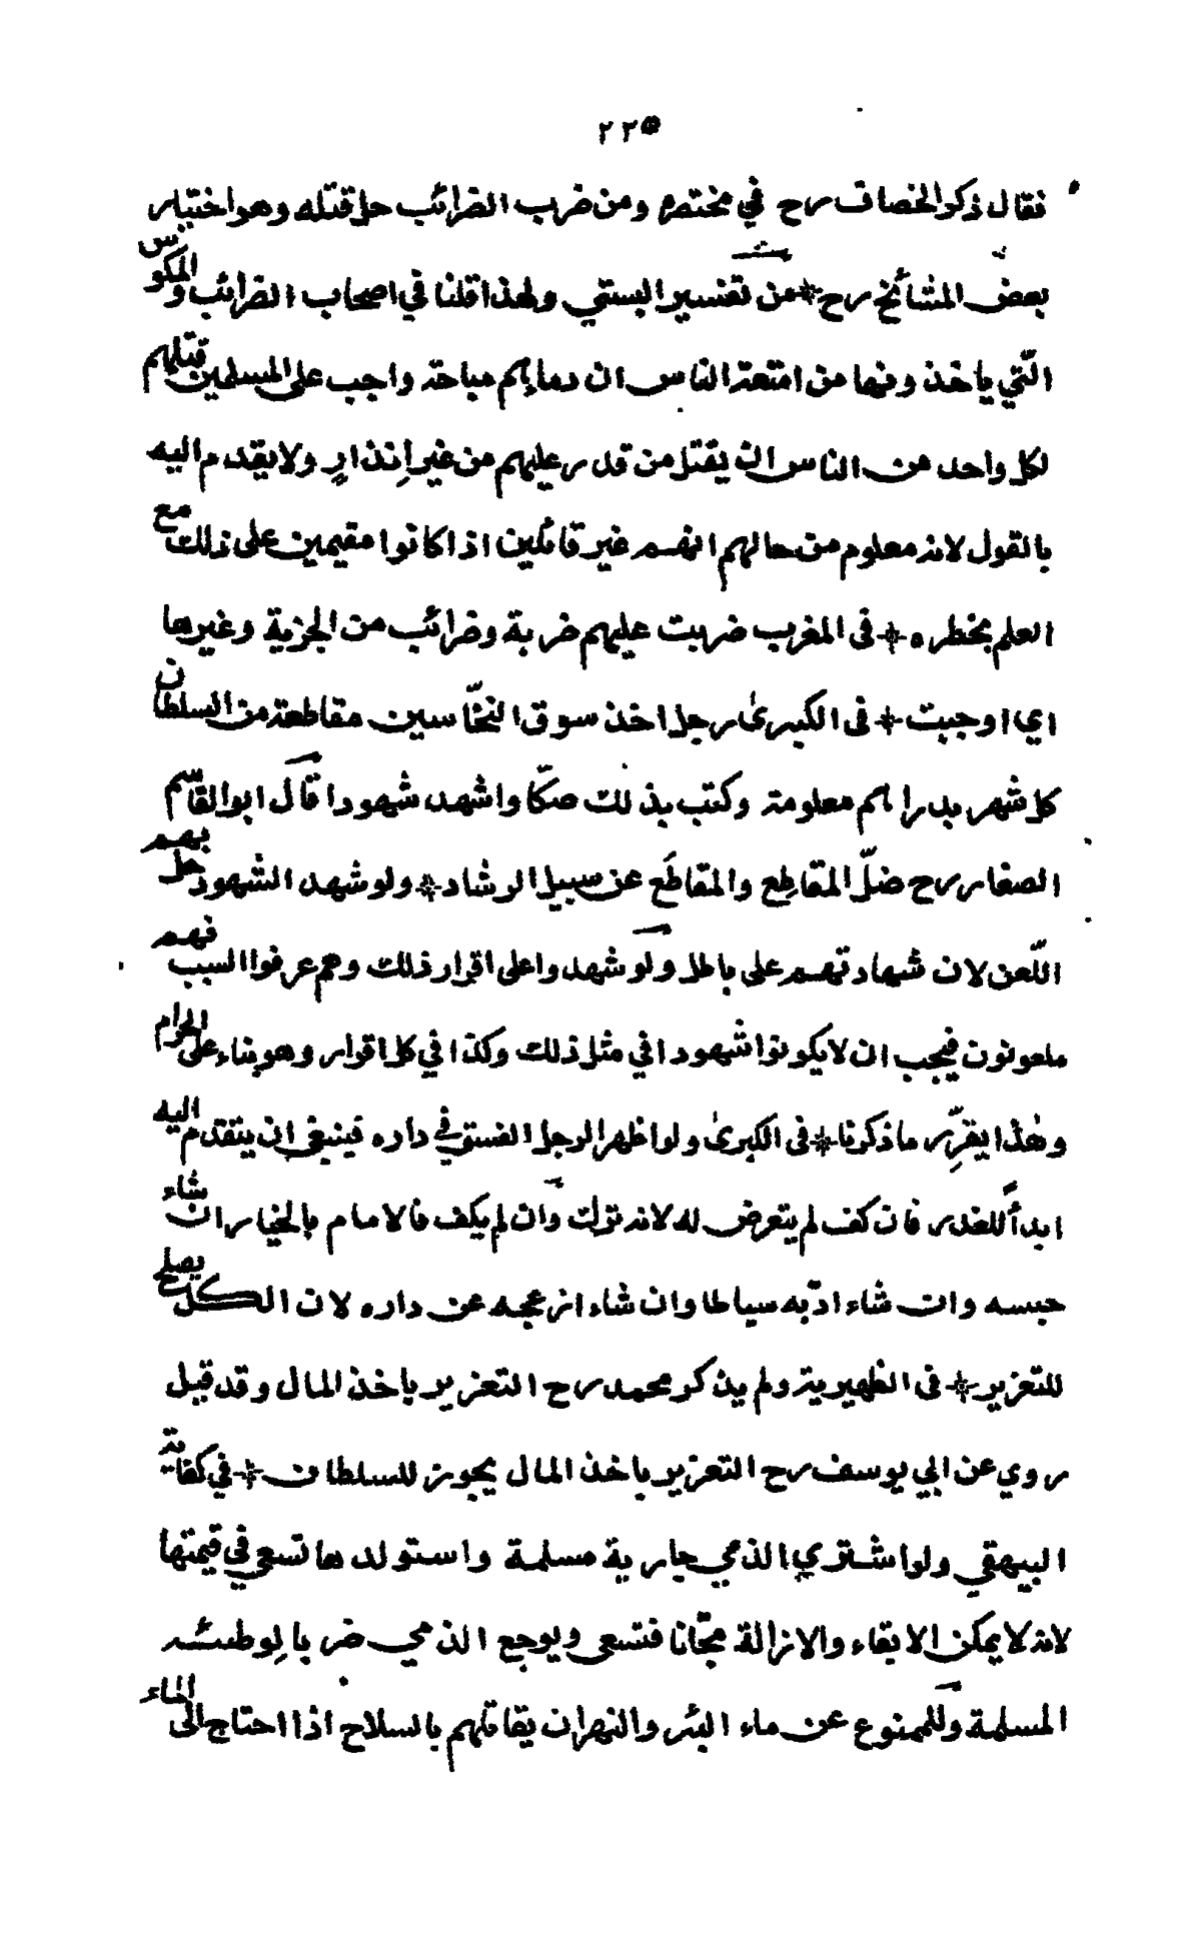 ٢٢٥
فقال ذكر الخصاف رح في مختصره ومن ضرب الضرائب حل قتله وهو اختيار
بعض المشائخ رح * من تفسير البستي ولهذا قلنا في اصحاب الضرائب والمكوس
الّتي ياخذونها من امتعة الناس ان دمائهم مباحة واجب على المسلمين قتلهم
لكل واحد من الناس ان يقتل من قدر عليهم من غير اِنذارٍ ولا يقدم اليه
بالقول لانه معلوم من حالهم انهم غير قائلين اذا كانوا مقيمين على ذلك مع
العلم بخطره * فى المغرب ضربت عليهم ضربة وضرائب من الجزية وغيرها
اي اوجبت * فى الكبرىٰ رجل اخذ سوق النخّاسين مقاطعة من السلطان
كل شهر بدراهم معلومة وكتب بذلك صكّا واشهد شهودا قال ابوالقاسم
الصفار رح ضلّ المقاطِع والمقاطَع عن سبيل الرشاد * ولو شهد الشهود حل بهم
اللّعن لان شهادتهم على باطل ولو شهدوا على اقرار ذلك وهم عرفوا السبب فهم
ملعونون فيجب ان لا يكونوا شهودا في مثل ذلك وكذا في كل اقرار وهو بناء على الحرام
وهٰذا يقرِّر ما ذكرنا * فى الكبرىٰ ولو اظهر الرجل الفسق في داره فينبغى ان يتقدم اليه
ابدأً للعذر فان كف لم يتعرض له لانه ترك وان لم يكف فالامام بالخيار ان شاء
حبسه وان شاء ادّبه سياطا وان شاء ازعجه عن داره لان الكل يصلح
للتعزير * فى الظهيرية ولم يذكر محمد رح التعزير باخذ المال وقد قيل
روي عن ابي يوسف رح التعزير باخذ المال يجوز للسلطان * في كفاية
البيهقي ولو اشتري الذمي جارية مسلمة واستولدها تسعى في قيمتها
لانه لا يمكن الابقاء والازالة مجّانا فتسعى ويوجع الذمي ضربا لِوطئه
المسلمة وللممنوع عن ماء البئر والنهر ان يقاتلهم بالسلاح اذا احتاج الى الماء